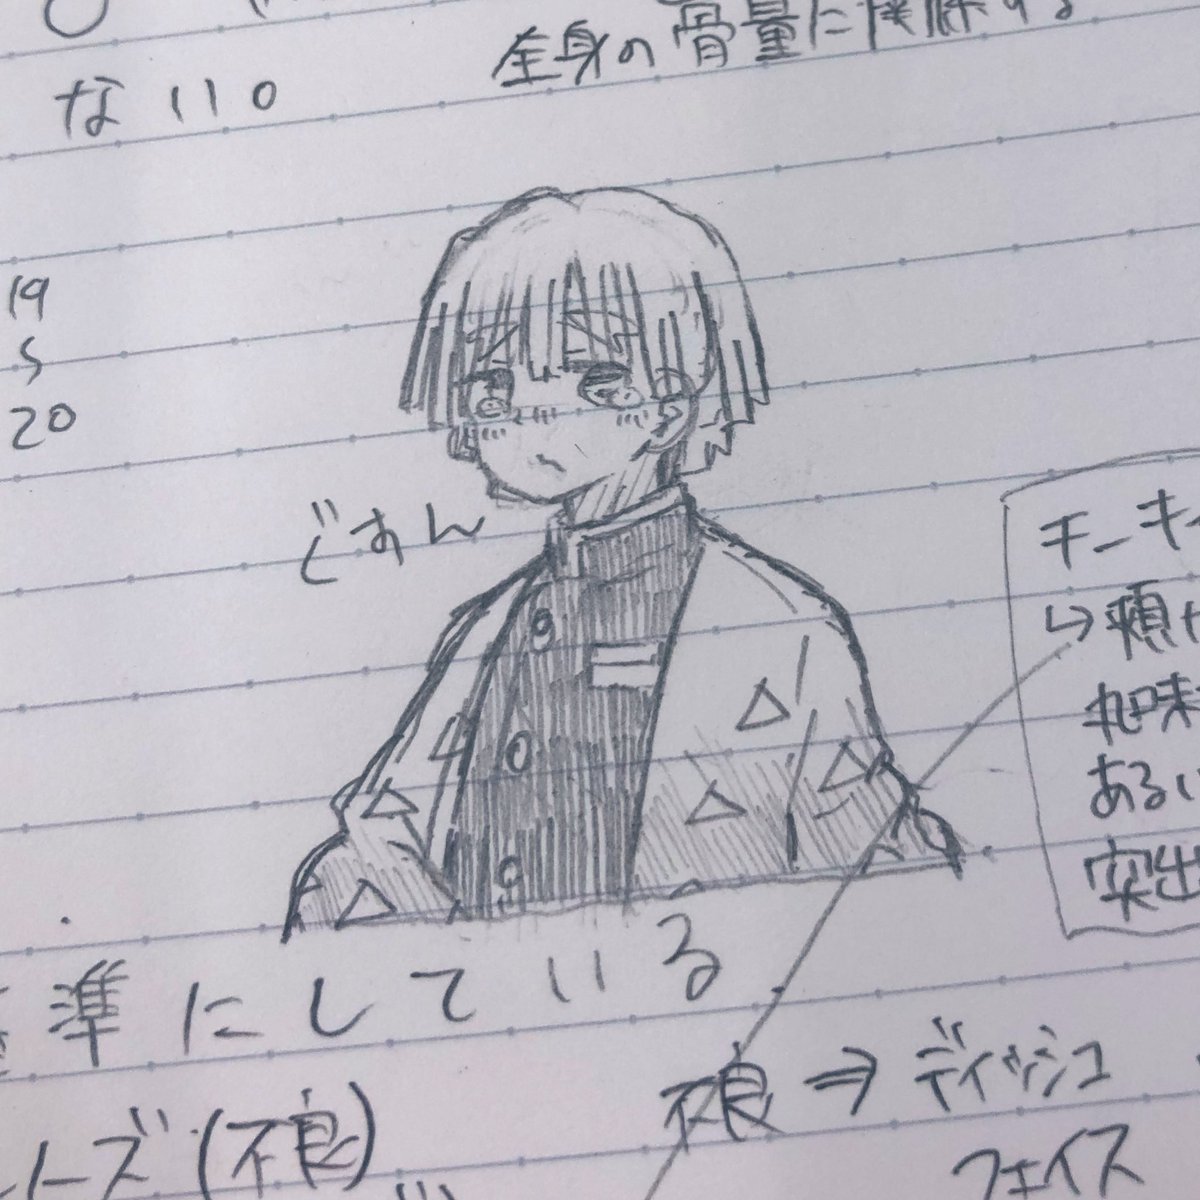 全身の骨量に関係する
ない。
19
5
20
ごあん
チーキ
↳頬
丸味
あるい
突出
基準にしている
ーズ(不良)
不良⇒ディッシュ
フェイス